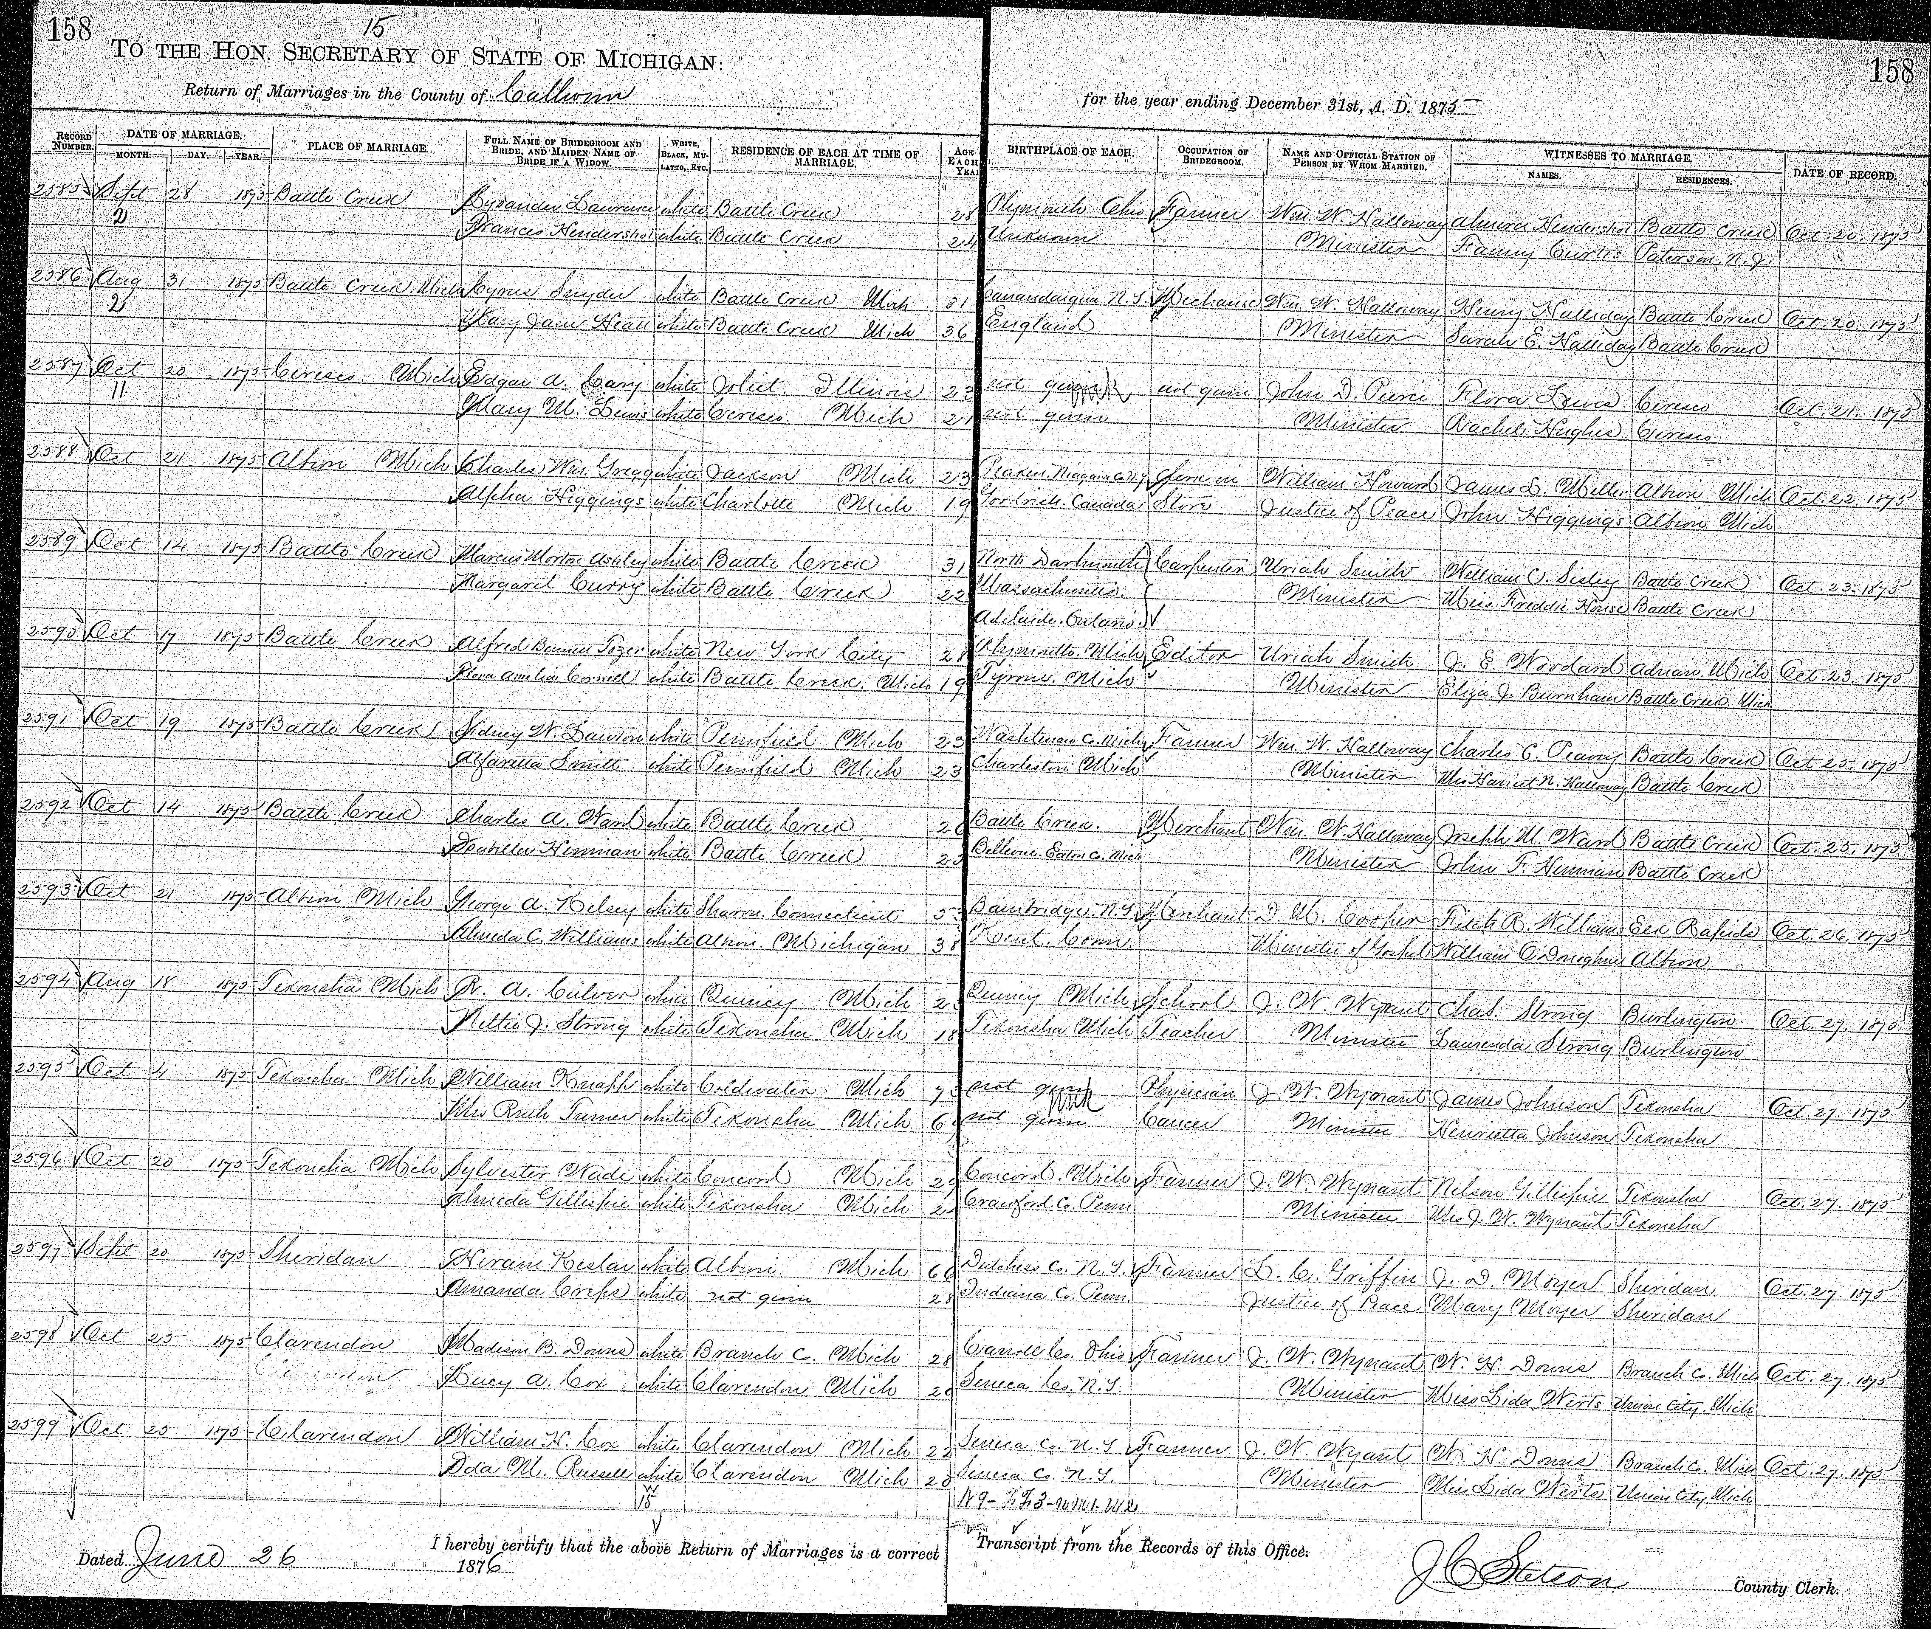 158
15
158
TO THE HON. SECRETARY OF STATE OF MICHIGAN:
Return of Marriages in the County of Calhoun for the year ending December 31st, A. D. 1875
RECORD NUMBER. DATE OF MARRIAGE. MONTH. DAY. YEAR. PLACE OF MARRIAGE. FULL NAME OF BRIDEGROOM AND BRIDE, AND MAIDEN NAME OF BRIDE IF A WIDOW. WHITE, BLACK, MULATTO, ETC. RESIDENCE OF EACH AT TIME OF MARRIAGE. AGE EACH YEAR BIRTHPLACE OF EACH. OCCUPATION OF BRIDEGROOM. NAME AND OFFICIAL STATION OF PERSON BY WHOM MARRIED. WITNESSES TO MARRIAGE. NAMES. RESIDENCES. DATE OF RECORD.
2585 Sept 28 1875 Battle Creek Lysander Lawrence white Battle Creek 28 Plymouth Ohio Farmer Wm. W. Halloway Almira Hendershot Battle Creek Oct. 20. 1875
2 Frances Hendershot white Battle Creek 24 Unknown Minister Fanny Curtis Paterson N. J.
2586 Aug 31 1875 Battle Creek Mich Cyrus Snyder white Battle Creek Mich 51 Canandaigua N.Y. Mechanic Wm. W. Halloway Henry Halliday Battle Creek Oct. 20. 1875
2 Mary Jane Heall white Battle Creek Mich 36 England Minister Sarah E. Halliday Battle Creek
2587 Oct 20 1875 Ceresco Mich Edgar A. Cary white Joliet Illinois 23 not given not given John D. Pierce Flora Lewis Ceresco Oct. 21. 1875
11 Mary M. Lewis white Ceresco Mich 21 not given Minister Rachel Hughes Ceresco
2588 Oct 21 1875 Albion Mich Charles Wm. Gregg white Jackson Mich 23 Niagara Co N.Y. William Howard James L. Miller Albion Mich Oct. 22. 1875
Alpha Higgings white Charlotte Mich 19 Goderich Canada Store Justice of Peace John Higgings Albion Mich
2589 Oct 14 1875 Battle Creek Marcus Morton Ashley white Battle Creek 31 North Dartmouth Carpenter Uriah Smith William C. Sisley Battle Creek Oct. 23. 1875
Margaret Curry white Battle Creek 22 Massachusetts. Minister Miss Freddie House Battle Creek
Adelaide. Ontario.
2590 Oct 17 1875 Battle Creek Alfred Tozer white New York City 28 Plymouth. Mich Editor Uriah Smith J. E. Woodard Adrian Mich Oct. 23. 1875
Amelia Cornell white Battle Creek. Mich 19 Tyrone. Mich Minister Eliza J. Burnham Battle Creek Mich
2591 Oct 19 1875 Battle Creek Sidney W. Lawson white Pennfield Mich 23 Washtenaw Co. Mich Farmer Wm. W. Halloway Charles C. Peavey Battle Creek Oct. 25. 1875
Alfaretta Smith white Pennfield Mich 23 Charleston Mich Minister Mrs Harriet N. Halloway Battle Creek
2592 Oct 14 1875 Battle Creek Charles A. Ward white Battle Creek 26 Battle Creek. Merchant Wm. W. Halloway Joseph M. Ward Battle Creek Oct. 25. 1875
Hinman white Battle Creek Bellevue Eaton Co. Mich Minister John F. Hinman Battle Creek
2593 Oct 21 1875 Albion Mich George A. Kelsey white Sharon Connecticut Bainbridge. N.Y. Merchant D. M. Cooper Fitch R. Williams Elk Rapids Oct. 26. 1875
Almeda C. Williams white Albion Michigan 38 Kent. Conn. Minister of Gospel William O'Donoghue Albion
2594 Aug 18 1875 Tekonsha Mich R. A. Culver white Quincy Mich Quincy Mich School J. W. Wynant Chas. Strong Burlington Oct. 27. 1875
Nettie J. Strong white Tekonsha Mich 18 Tekonsha Mich Teacher Minister Laurenda Strong Burlington
2595 Oct 4 1875 Tekonsha Mich William Knapp white Coldwater Mich not given Physician J. W. Wynant James Johnson Tekonsha Oct. 27. 1875
Mrs Ruth Turner white Tekonsha Mich not given Cancer Minister Henrietta Johnson Tekonsha
2596 Oct 20 1875 Tekonsha Mich Sylvester Wade white Concord Mich 29 Concord. Mich Farmer J. W. Wynant Nelson Gillispie Tekonsha Oct. 27. 1875
Almeda Gillispie white Tekonsha Mich Crawford Co. Penn Minister Mrs J. W. Wynant Tekonsha
2597 Sept 20 1875 Sheridan Hiram Keslar white Albion Mich 66 Dutchess Co. N.Y. Farmer L. C. Griffin J. D. Moyer Sheridan Oct. 27. 1875
Amanda Crips white not given 28 Indiana Co. Penn. Justice of Peace Mary Moyer Sheridan
2598 Oct 25 1875 Clarendon Madison B. Downs white Branch Co. Mich 28 Carroll Co. Ohio Farmer J. W. Wynant W. H. Downs Branch Co. Mich Oct. 27. 1875
Clarendon Lucy A. Cox white Clarendon Mich 20 Seneca Co. N.Y. Minister Miss Lida Werts Union City Mich
2599 Oct 25 1875 Clarendon William H. Cox white Clarendon Mich 22 Seneca Co. N.Y. Farmer J. W. Wynant W. H. Downs Branch Co. Mich Oct. 27. 1875
Ada M. Russell white Clarendon Mich 20 Seneca Co. N.Y. Minister Miss Lida Werts Union City Mich
W
15
Dated June 26 1876 I hereby certify that the above Return of Marriages is a correct Transcript from the Records of this Office.
J C Stetson County Clerk.